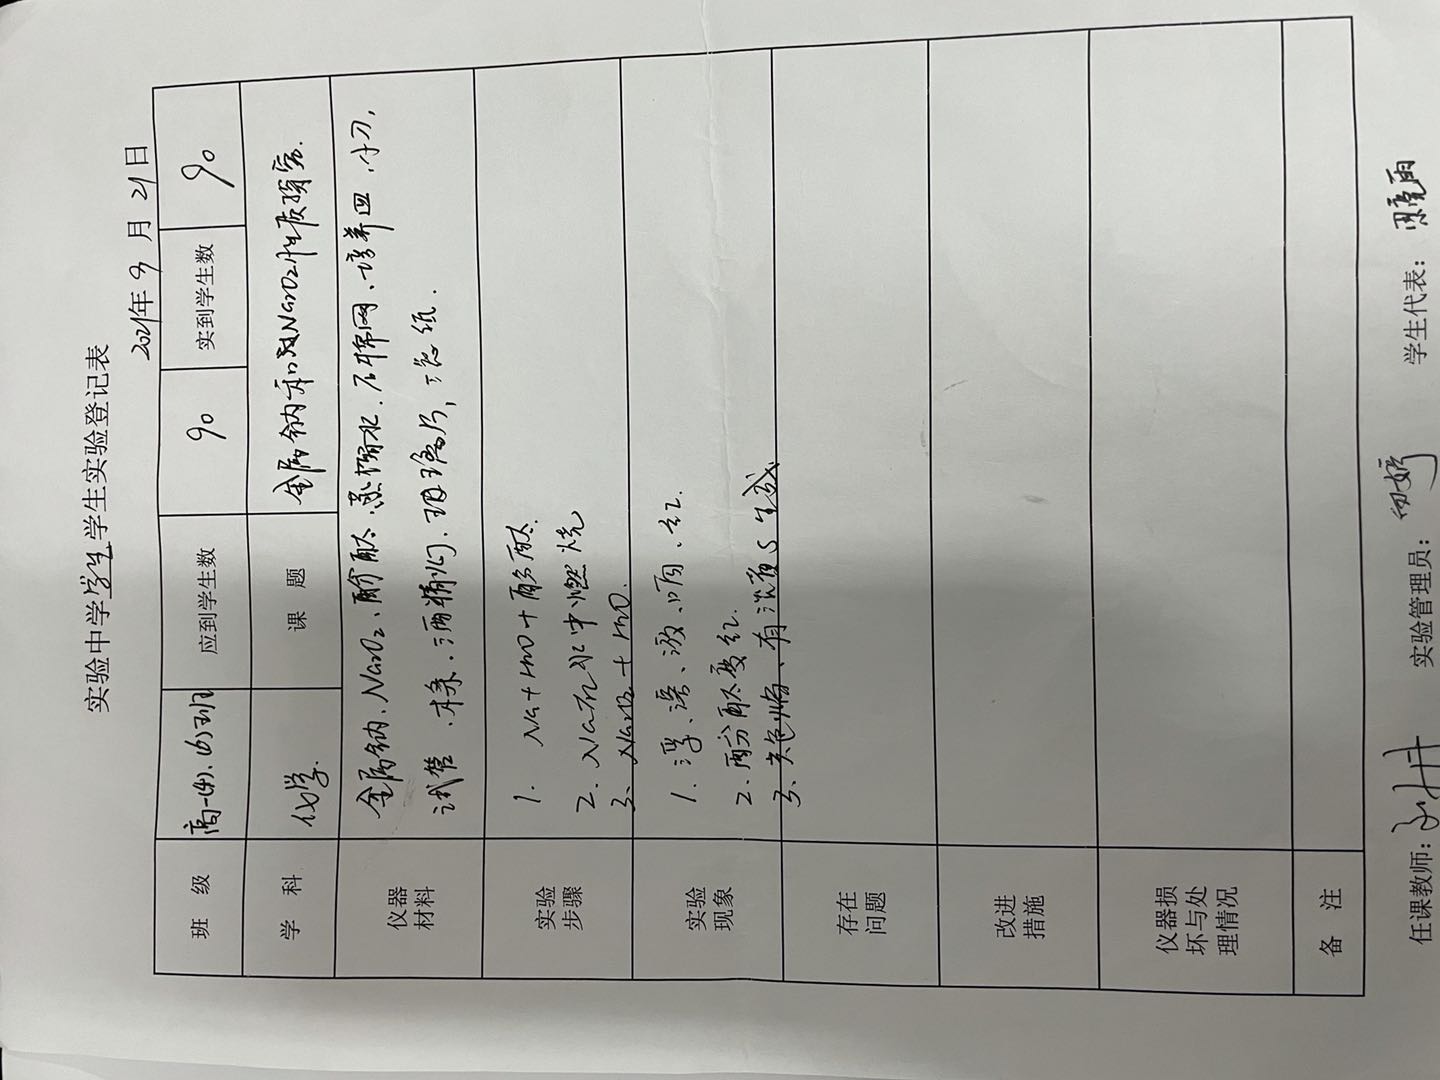 实验中学学生学生实验登记表
2021年9月21日
班 级 高一(4)、(6)班 应到学生数 90 实到学生数 90
学 科 化学 课 题 金属钠和Na2O2性质实验
仪器 金属钠、Na2O2、酚酞、蒸馏水、石棉网、培养皿、小刀、
材料 试管、木条、酒精灯、玻璃片、滤纸.
实验 1. Na+H2O+酚酞
步骤 2. Na在水中燃烧
3. Na2O2+H2O.
实验 1. 浮、溶、游、响、红.
现象 2. 酚酞变红.
3、
存在
问题
改进
措施
仪器损
坏与处
理情况
备 注
任课教师： 实验管理员： 学生代表：